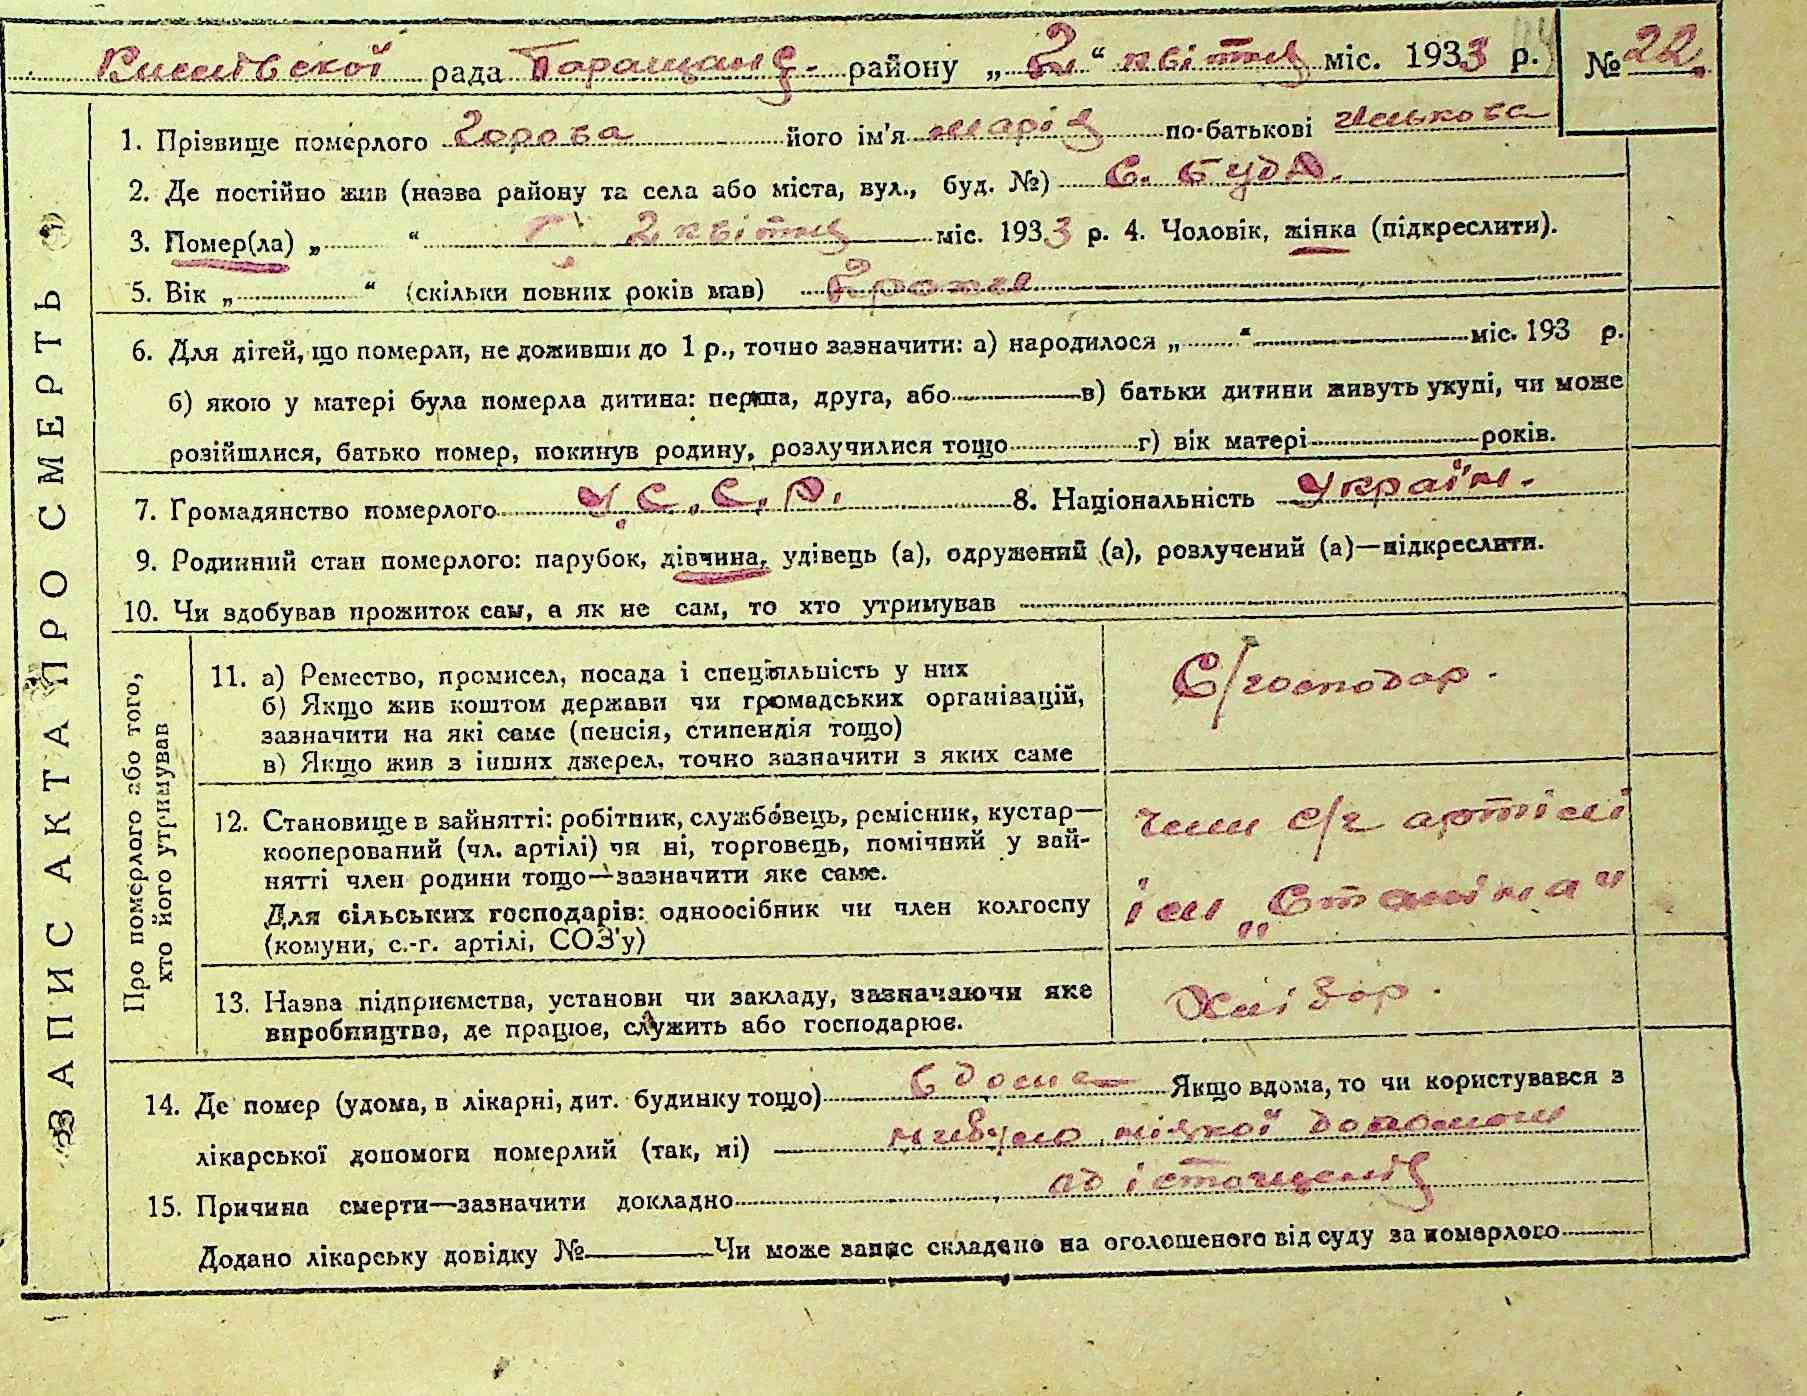 рада Таращанс. району „ 2 “ квітня міс. 1933 р. № 22.
ЗАПИС АКТА ПРО СМЕРТЬ
1. Прізвище померлого Горова його ім'я Марія по-батькові
2. Де постійно жив (назва району та села або міста, вул., буд. №) С. Буда.
3. Помер(ла) „ “ 2 квітня міс. 1933 р. 4. Чоловік, жінка (підкреслити).
5. Вік „ “ (скільки повних років мав) 2 роки
6. Для дітей, що померли, не доживши до 1 р., точно зазначити: а) народилося „ “ міс. 193 р.
б) якою у матері була померла дитина: перша, друга, або в) батьки дитини живуть укупі, чи може
розійшлися, батько помер, покинув родину, розлучилися тощо г) вік матері років.
7. Громадянство померлого У.С.С.Р. 8. Національність Україн.
9. Родинний стан померлого: парубок, дівчина, удівець (а), одружений (а), розлучений (а)—підкреслити.
10. Чи здобував прожиток сам, а як не сам, то хто утримував
Про померлого або того,
хто його утримував
11. а) Ремество, промисел, посада і спеціяльність у них
б) Якщо жив коштом держави чи громадських організацій,
зазначити на які саме (пенсія, стипендія тощо)
в) Якщо жив з інших джерел, точно зазначити з яких саме
С/господар.
12. Становище в зайнятті: робітник, службовець, ремісник, кустар—
кооперований (чл. артілі) чи ні, торговець, помічний у зай-
нятті член родини тощо—зазначити яке саме.
Для сільських господарів: одноосібник чи член колгоспу
(комуни, с.-г. артілі, СОЗ'у)
член с/г артілі
ім „Сталіна“
13. Назва підприємства, установи чи закладу, зазначаючи яке
виробництво, де працює, служить або господарює.
Хлібор.
14. Де помер (удома, в лікарні, дит. будинку тощо) вдома Якщо вдома, то чи користувався з
лікарської допомоги померлий (так, ні) небуло ніякої допомоги
15. Причина смерти—зазначити докладно од істощенія
Додано лікарську довідку № Чи може запис складено на оголошеного від суду за померлого